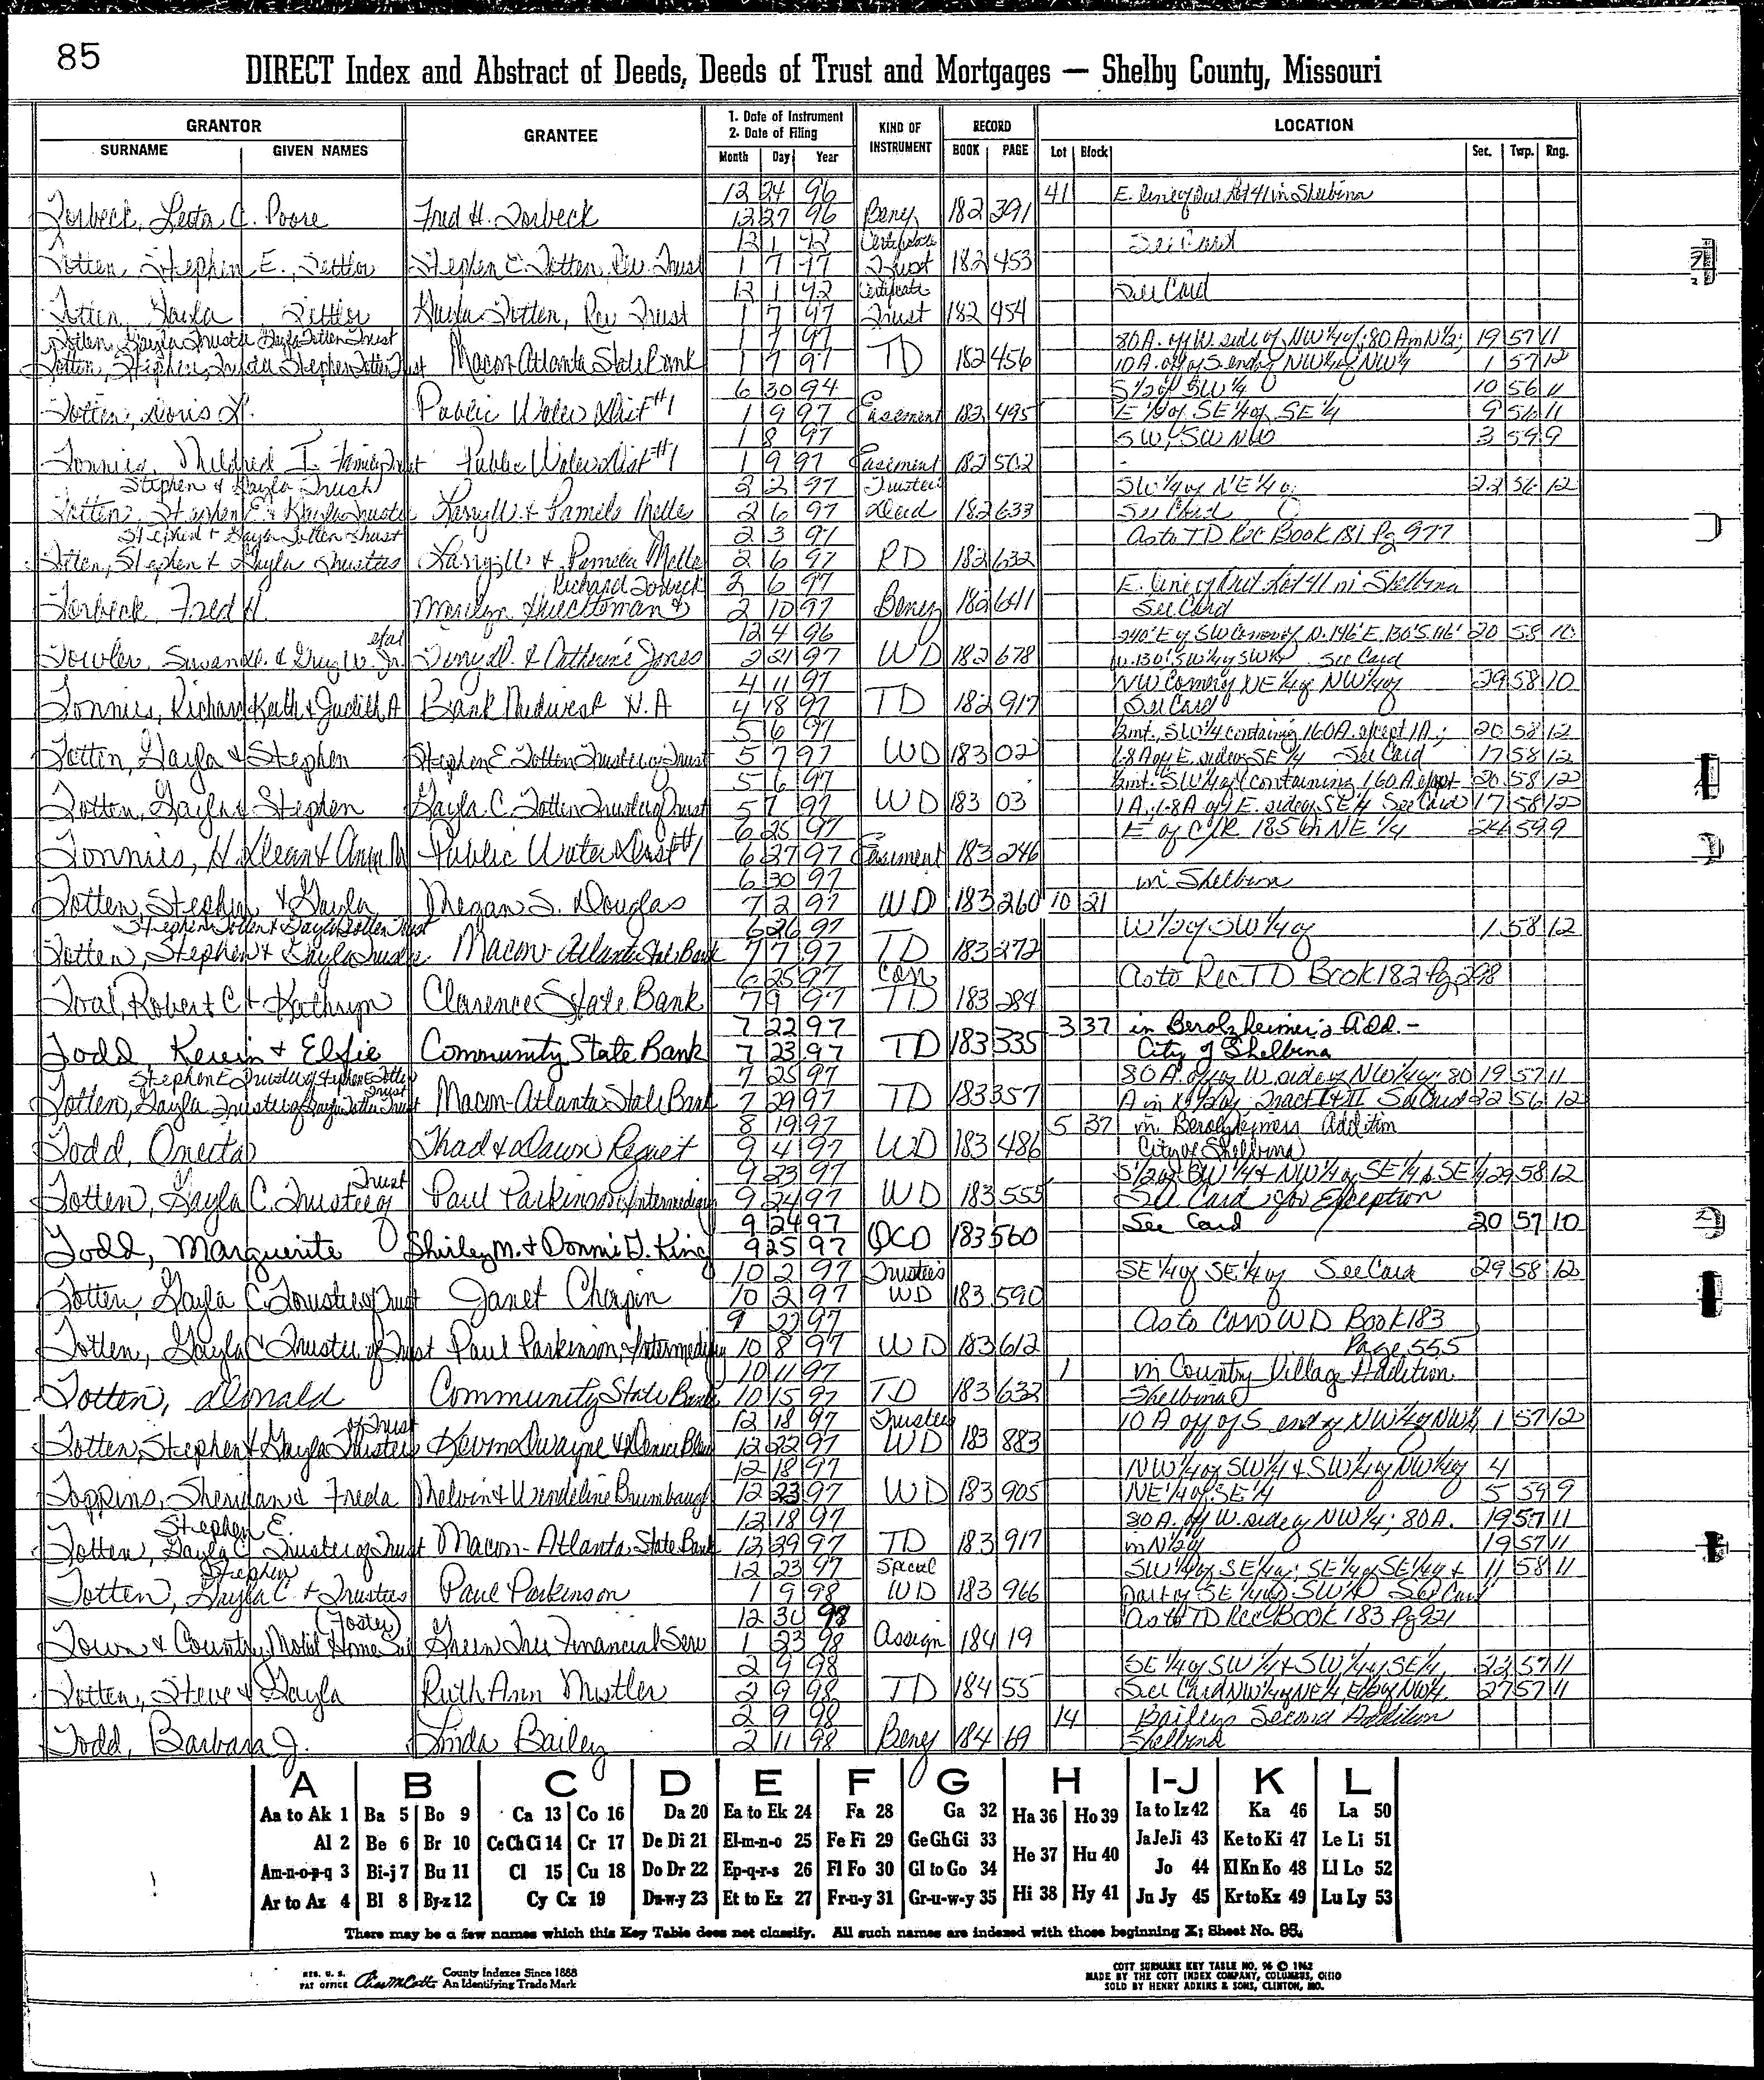 85
DIRECT Index and Abstract of Deeds, Deeds of Trust and Mortgages — Shelby County, Missouri
GRANTOR GRANTEE 1. Date of Instrument 2. Date of Filing KIND OF INSTRUMENT RECORD LOCATION
SURNAME GIVEN NAMES Month Day Year BOOK PAGE Lot Block Sec. Twp. Rng.
12 24 96 41 E. line of Out Lot 41 in Shelbina
Torbeck, Leota C. Poore Fred H. Torbeck 12 27 96 Beney 182 391
12 1 92 Certificate See Card
Totten, Stephen E., Settlor Stephen E. Totten, Rev. Trust 1 7 97 Trust 182 453
12 1 92 Certificate See Card
Totten, Gayla Settlor Gayla Totten, Rev Trust 1 7 97 Trust 182 454
Totten, Gayla Trustee Gayla Totten Trust 1 7 97 80 A. off W. side of NW 1/4 of; 80 A in N 1/2; 19 57 11
Totten, Stephen, Trustee Stephen Totten Trust Macon-Atlanta State Bank 1 7 97 TD 182 456 10 A. off of S. end of NW 1/4 of NW 1/4 1 57 12
6 30 94 S 1/2 of SW 1/4 10 56 11
Totten, Doris L. Public Water Dist #1 1 9 97 Easement 182 495 E 1/2 of SE 1/4 of SE 1/4 9 56 11
1 8 97 SW, SW NW 3 59 9
Tonnies, Mildred I. Family Trust Public Water Dist #1 1 9 97 Easement 182 502
Stephen & Gayla Trust 2 2 97 Trustee's SW 1/4 of NE 1/4 of 22 56 12
Totten, Stephen E & Gayla Trustee Larry W. & Pamela Melle 2 6 97 Deed 182 633 See Card
Stephen & Gayla Totten Trust 2 3 97 As to TD Rec Book 181 Pg 977
Totten, Stephen & Gayla Trustees Larry W. & Pamela Melle 2 6 97 RD 182 632
Richard Torbeck 2 6 97 E. line of Out Lot 41 in Shelbina
Torbeck, Fred H. Marilyn & 2 10 97 Beney 182 641 See Card
etal 12 4 96 240' E of SW Corner of N. 146' E. 130' S. 116' 20 58 10
Towler, Susan D. & Guy W. Jr. Terry D. & Catherine Jones 2 21 97 WD 182 678 W. 130' SW 1/4 of SW 1/4 See Card
4 11 97 NW Corner of NE 1/4 of NW 1/4 of 29 58 10
Tonnies, Richard Keith & Judith A Bank Midwest N.A 4 18 97 TD 182 917 See Card
5 6 97 SW 1/4 containing 160 A. except 1 A.; 20 58 12
Totten, Gayla & Stephen Stephen E Totten Trustee of Trust 5 7 97 WD 183 02 1.8 A off E. side of SE 1/4 See Card 17 58 12
5 6 97 SW 1/4 of containing 160 A except 20 58 12
Totten, Gayla & Stephen Gayla C. Totten Trustee of Trust 5 7 97 WD 183 03 1 A, 1.8 A off E. side of SE 1/4 See Card 17 58 12
6 25 97 E of C/R 185 in NE 1/4 24 59 9
Tonnies, H. Dean & Ann M Public Water Dist #1 6 27 97 Easement 183 246
6 30 97 in Shelbina
Totten, Stephen & Gayla Megan S. Douglas 7 2 97 WD 183 260 10 21
Stephen Totten & Gayla Totten Trust 6 26 97 W 1/2 of SW 1/4 of 1 58 12
Totten, Stephen & Gayla Trustee Macon-Atlanta State Bank 7 7 97 TD 183 272
6 25 97 Corr As to Rec TD Book 182 Pg 298
Toal, Robert C & Kathryn Clarence State Bank 7 9 97 TD 183 284
7 22 97 3 37 in Berolzheimer's Add. -
Todd Kevin & Elsie Community State Bank 7 23 97 TD 183 335 City of Shelbina
Stephen E Trustee of Stephen Totten Trust 7 25 97 80 A. off of W. side of NW 1/4 of; 80 19 57 11
Totten, Gayla Trustee of Gayla Totten Trust Macon-Atlanta State Bank 7 29 97 TD 183 357 A in N 1/2 of Tract I & II See Card 22 56 12
8 19 97 5 37 in Berolzheimers Addition
Todd, Oneita Thad & Dawn Requet 9 4 97 WD 183 486 City of Shelbina
Trust 9 23 97 S 1/2 of SW 1/4 & NW 1/4 of SE 1/4 & SE 1/4 29 58 12
Totten, Gayla C. Trustee of Paul Parkinson, Intermediary 9 24 97 WD 183 555 See Card for Exception
9 24 97 See Card 20 57 10
Todd, Marguerite Shirley M. & Donnie G. King 9 25 97 QCD 183 560
10 2 97 Trustee's SE 1/4 of SE 1/4 of See Card 29 58 12
Totten, Gayla C. Trustee of Trust Janet Chapin 10 2 97 WD 183 590
9 22 97 As to Corr WD Book 183
Totten, Gayla C Trustee of Trust Paul Parkinson, Intermediary 10 8 97 WD 183 612 Page 555
10 11 97 1 in Country Village Addition
Totten, Donald Community State Bank 10 15 97 TD 183 632 Shelbina
of Trust 12 18 97 Trustee 10 A off of S end of NW 1/4 of NW 1/4 1 57 12
Totten, Stephen & Gayla Trustees Kevin Dwayne & Denice 12 22 97 WD 183 883
12 18 97 NW 1/4 of SW 1/4 & SW 1/4 of NW 1/4 of 4
Toppins, Sheridan & Freda Melvin & Wendeline Brumbaugh 12 23 97 WD 183 905 NE 1/4 of SE 1/4 5 59 9
Stephen E. 12 18 97 80 A. off W. side of NW 1/4; 80 A. 19 57 11
Totten, Gayla C Trustee of Trust Macon-Atlanta State Bank 12 29 97 TD 183 917 in N 1/2 of 19 57 11
Stephen 12 23 97 Special SW 1/4 of SE 1/4 of; SE 1/4 of SE 1/4 of & 11 58 11
Totten, Gayla C. & Trustees Paul Parkinson 1 9 98 WD 183 966 part of SE 1/4 of SW 1/4 See Card
(Foster) 12 30 98 As to TD Rec BOOK 183 Pg 921
Town & County Mobil Home Green Tree Financial Serv 1 23 98 Assign 184 19
2 9 98 SE 1/4 of SW 1/4 & SW 1/4 of SE 1/4 22 57 11
Totten, Steve & Gayla Ruth Ann 2 9 98 TD 184 55 See Card NW 1/4 of NE 1/4, E 1/2 of NW 1/4 27 57 11
2 9 98 14 Baileys Second Addition
Todd, Barbara J. Linda Bailey 2 11 98 Beney 184 69 Shelbina
A B C D E F G H I-J K L
Aa to Ak 1 Ba 5 Bo 9 Ca 13 Co 16 Da 20 Ea to Ek 24 Fa 28 Ga 32 Ha 36 Ho 39 Ia to Iz 42 Ka 46 La 50
Al 2 Be 6 Br 10 Ce Ch Ci 14 Cr 17 De Di 21 El-m-n-o 25 Fe Fi 29 Ge Gh Gi 33 He 37 Hu 40 Ja Je Ji 43 Ke to Ki 47 Le Li 51
Am-n-o-p-q 3 Bi-j 7 Bu 11 Cl 15 Cu 18 Do Dr 22 Ep-q-r-s 26 Fl Fo 30 Gl to Go 34 Jo 44 Kl Kn Ko 48 Ll Lo 52
Ar to Az 4 Bl 8 By-z 12 Cy Cz 19 Du-w-y 23 Et to Ez 27 Fr-u-y 31 Gr-u-w-y 35 Hi 38 Hy 41 Ju Jy 45 Kr to Kz 49 Lu Ly 53
There may be a few names which this Key Table does not classify. All such names are indexed with those beginning X; Sheet No. 95.
REG. U. S. PAT OFFICE County Indexes Since 1888 An Identifying Trade Mark
COTT SURNAME KEY TABLE NO. 96 © 1962
MADE BY THE COTT INDEX COMPANY, COLUMBUS, OHIO
SOLD BY HENRY ADKINS & SONS, CLINTON, MO.